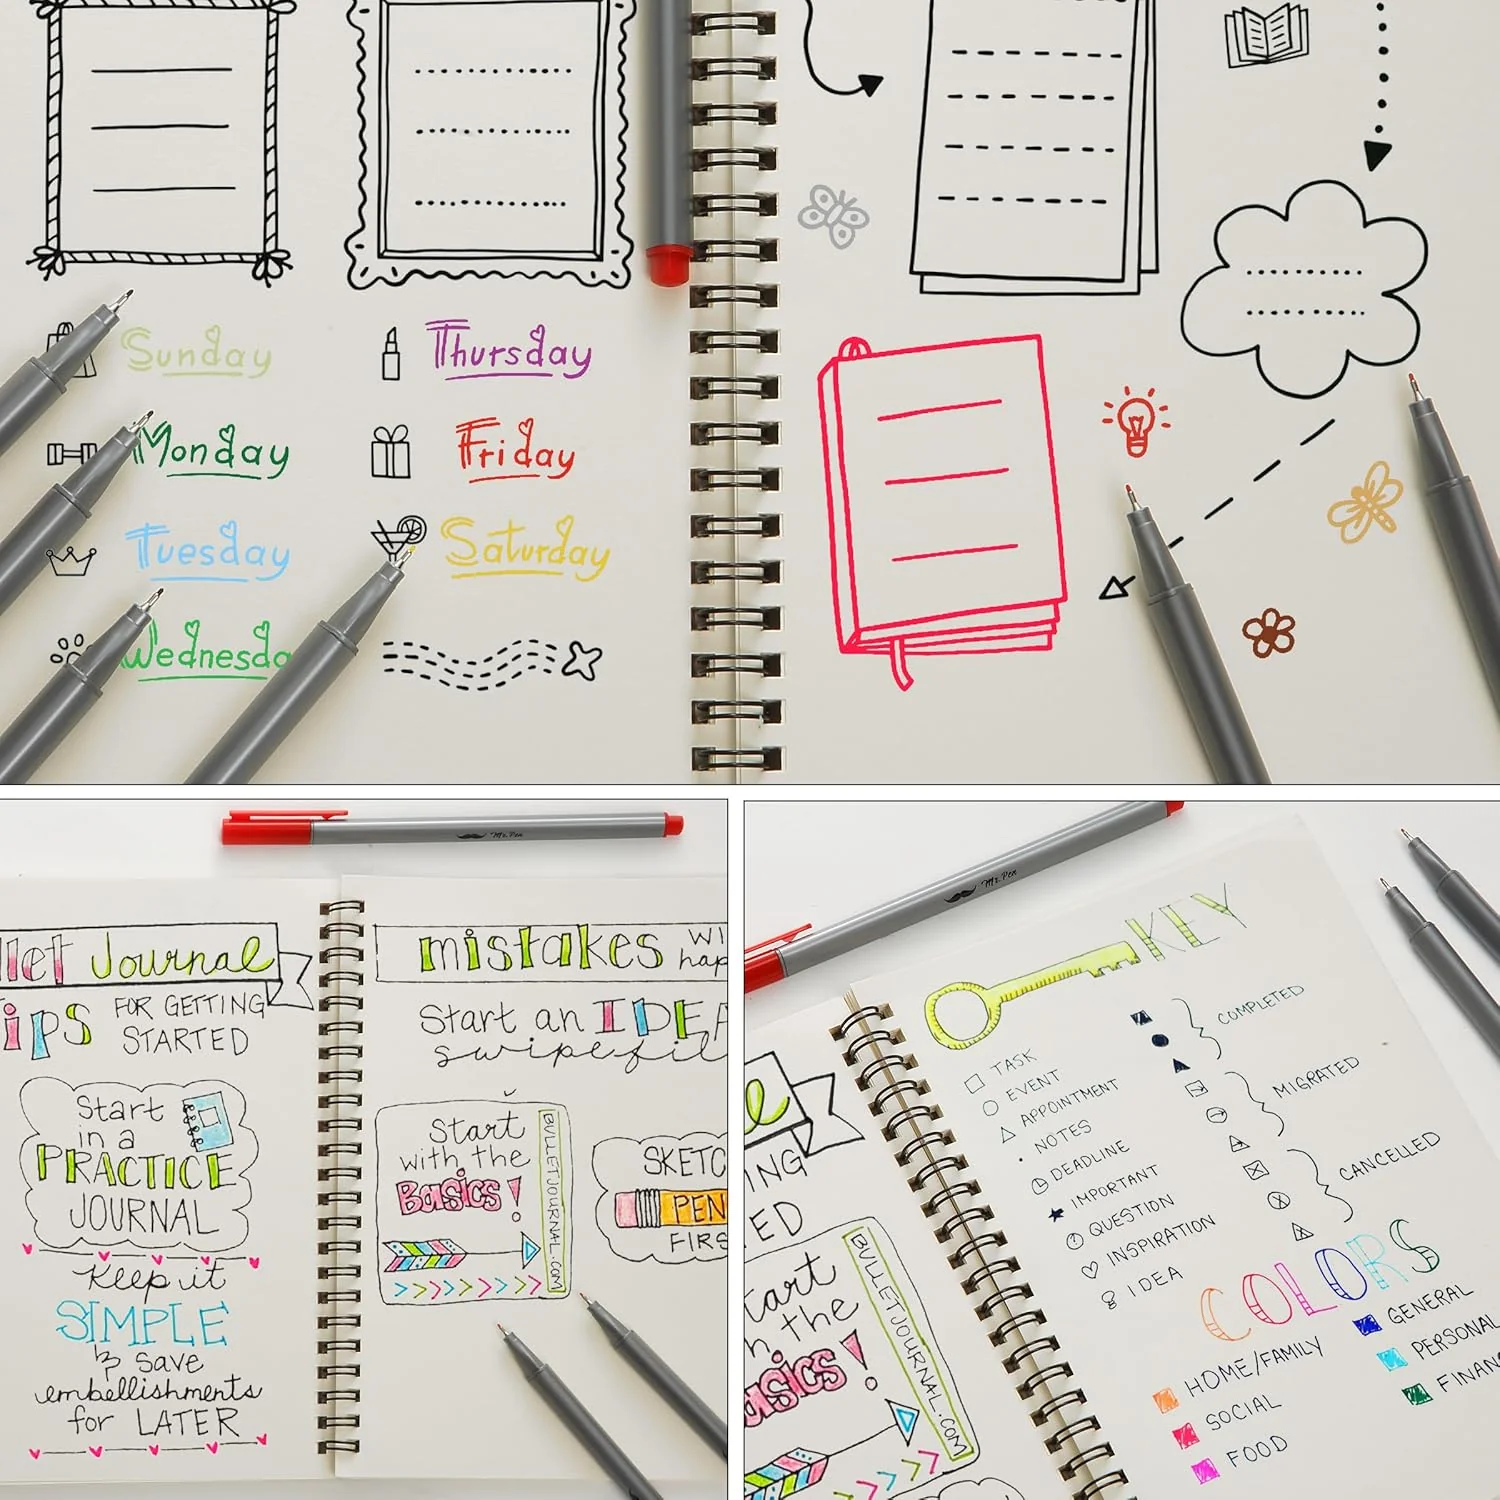 Sunday
Thursday
Monday
Friday
Tuesday
Saturday
Wednesda
Mr. Pen
Journal
FOR GETTING
STARTED
Start
in a
PRACTICE
JOURNAL
Keep it
SIMPLE
& save
embellishments
for LATER
mistakes
Start an
Start
with the
Basics!
BULLETJOURNAL.COM
Mr. Pen
KEY
TASK
EVENT
APPOINTMENT
NOTES
DEADLINE
IMPORTANT
QUESTION
INSPIRATION
IDEA
COMPLETED
MIGRATED
CANCELLED
COLORS
HOME/FAMILY
SOCIAL
FOOD
GENERAL
PERSONAL
FINAN
the
BULLETJOURNAL.COM